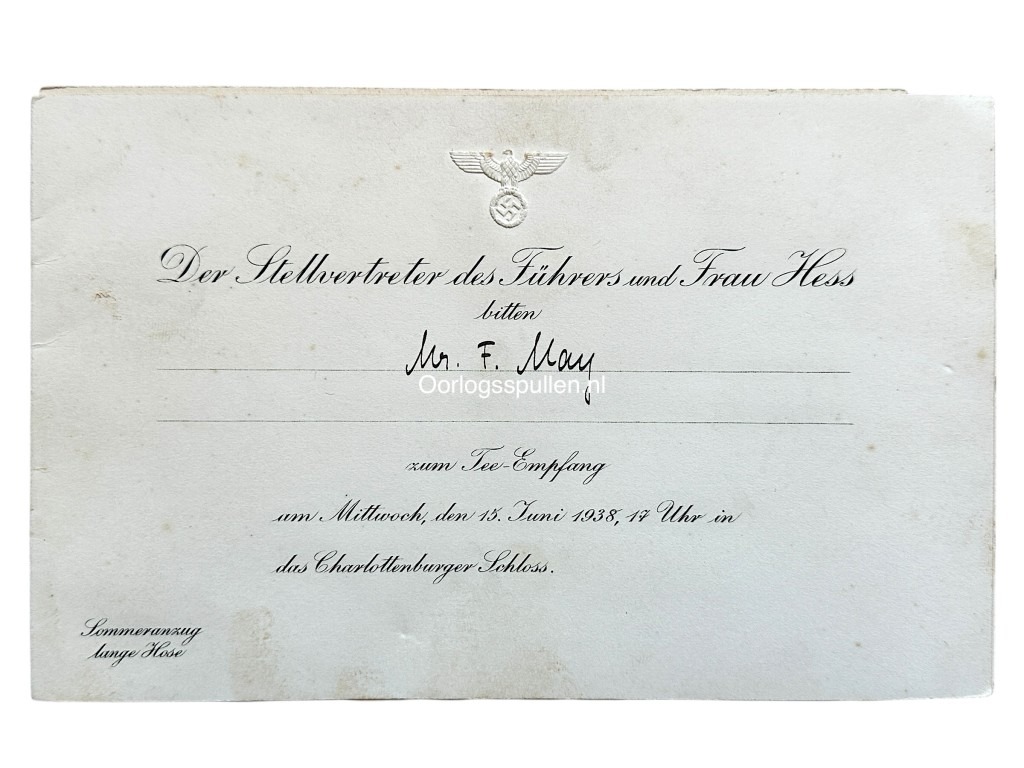 Der Stellvertreter des Führers und Frau Hess
bitten
Mr. F. May
Oorlogsspullen.nl
zum Tee-Empfang
am Mittwoch, den 15. Juni 1938, 17 Uhr in
das Charlottenburger Schloss.
Sommeranzug
lange Hose